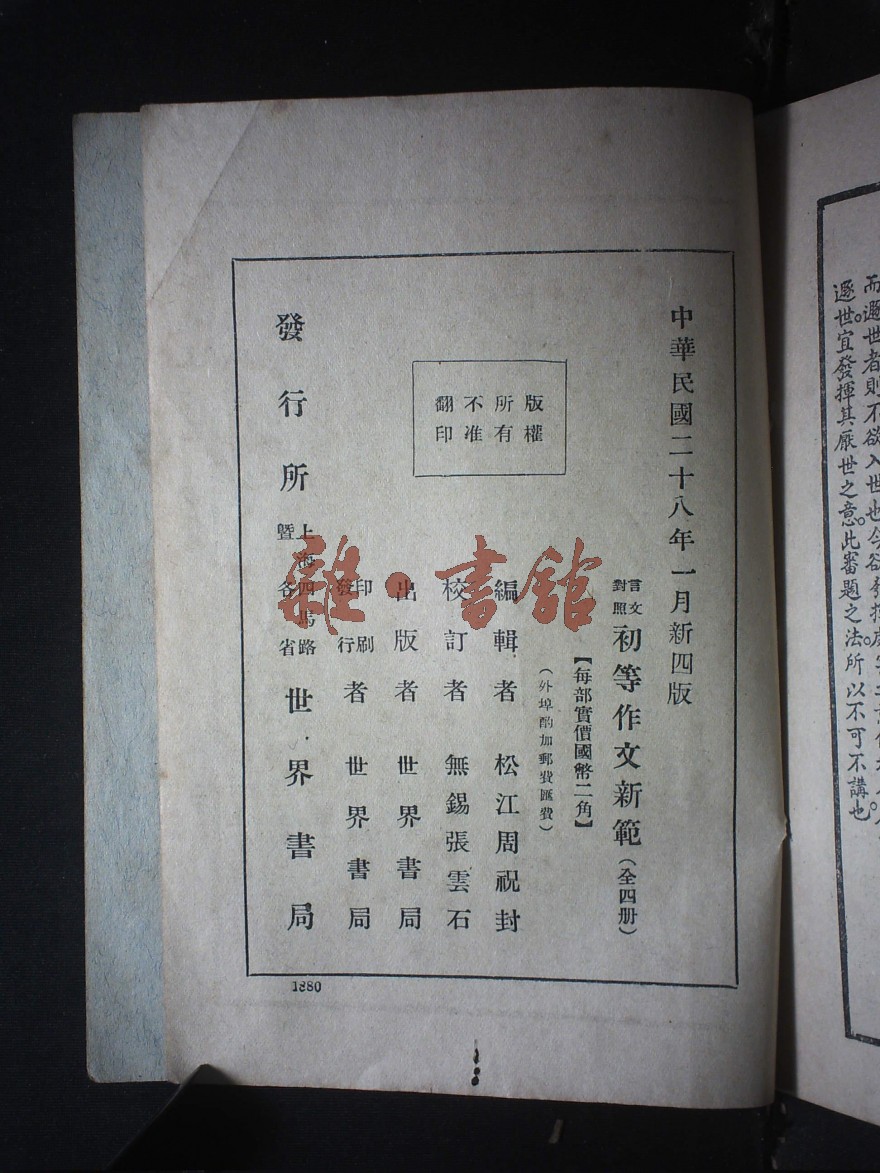 而遯世者則不欲入世也今欲發揮
遯世宜發揮其厭世之意此審題之法所以不可不講也
中華民國二十八年一月新四版
言文
對照
初等作文新範（全四册）
【每部實價國幣二角】
（外埠酌加郵費匯費）
版權
所有
不准
翻印
編輯者 松江周祝封
校訂者 無錫張雲石
出版者 世界書局
印刷
發行
者 世界書局
發行所
上海四馬路
暨各省
世界書局
1880
雜·書館